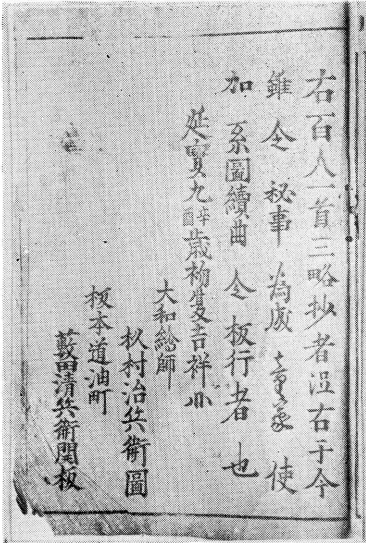 右百人一首三略抄者右于今
雖令秘事為成童蒙使
加系圖續曲令板行者也
延寶九辛酉歳初夏吉祥
大和繪師
杦村治兵衛圖
板本通油町
藪田清兵衛開板